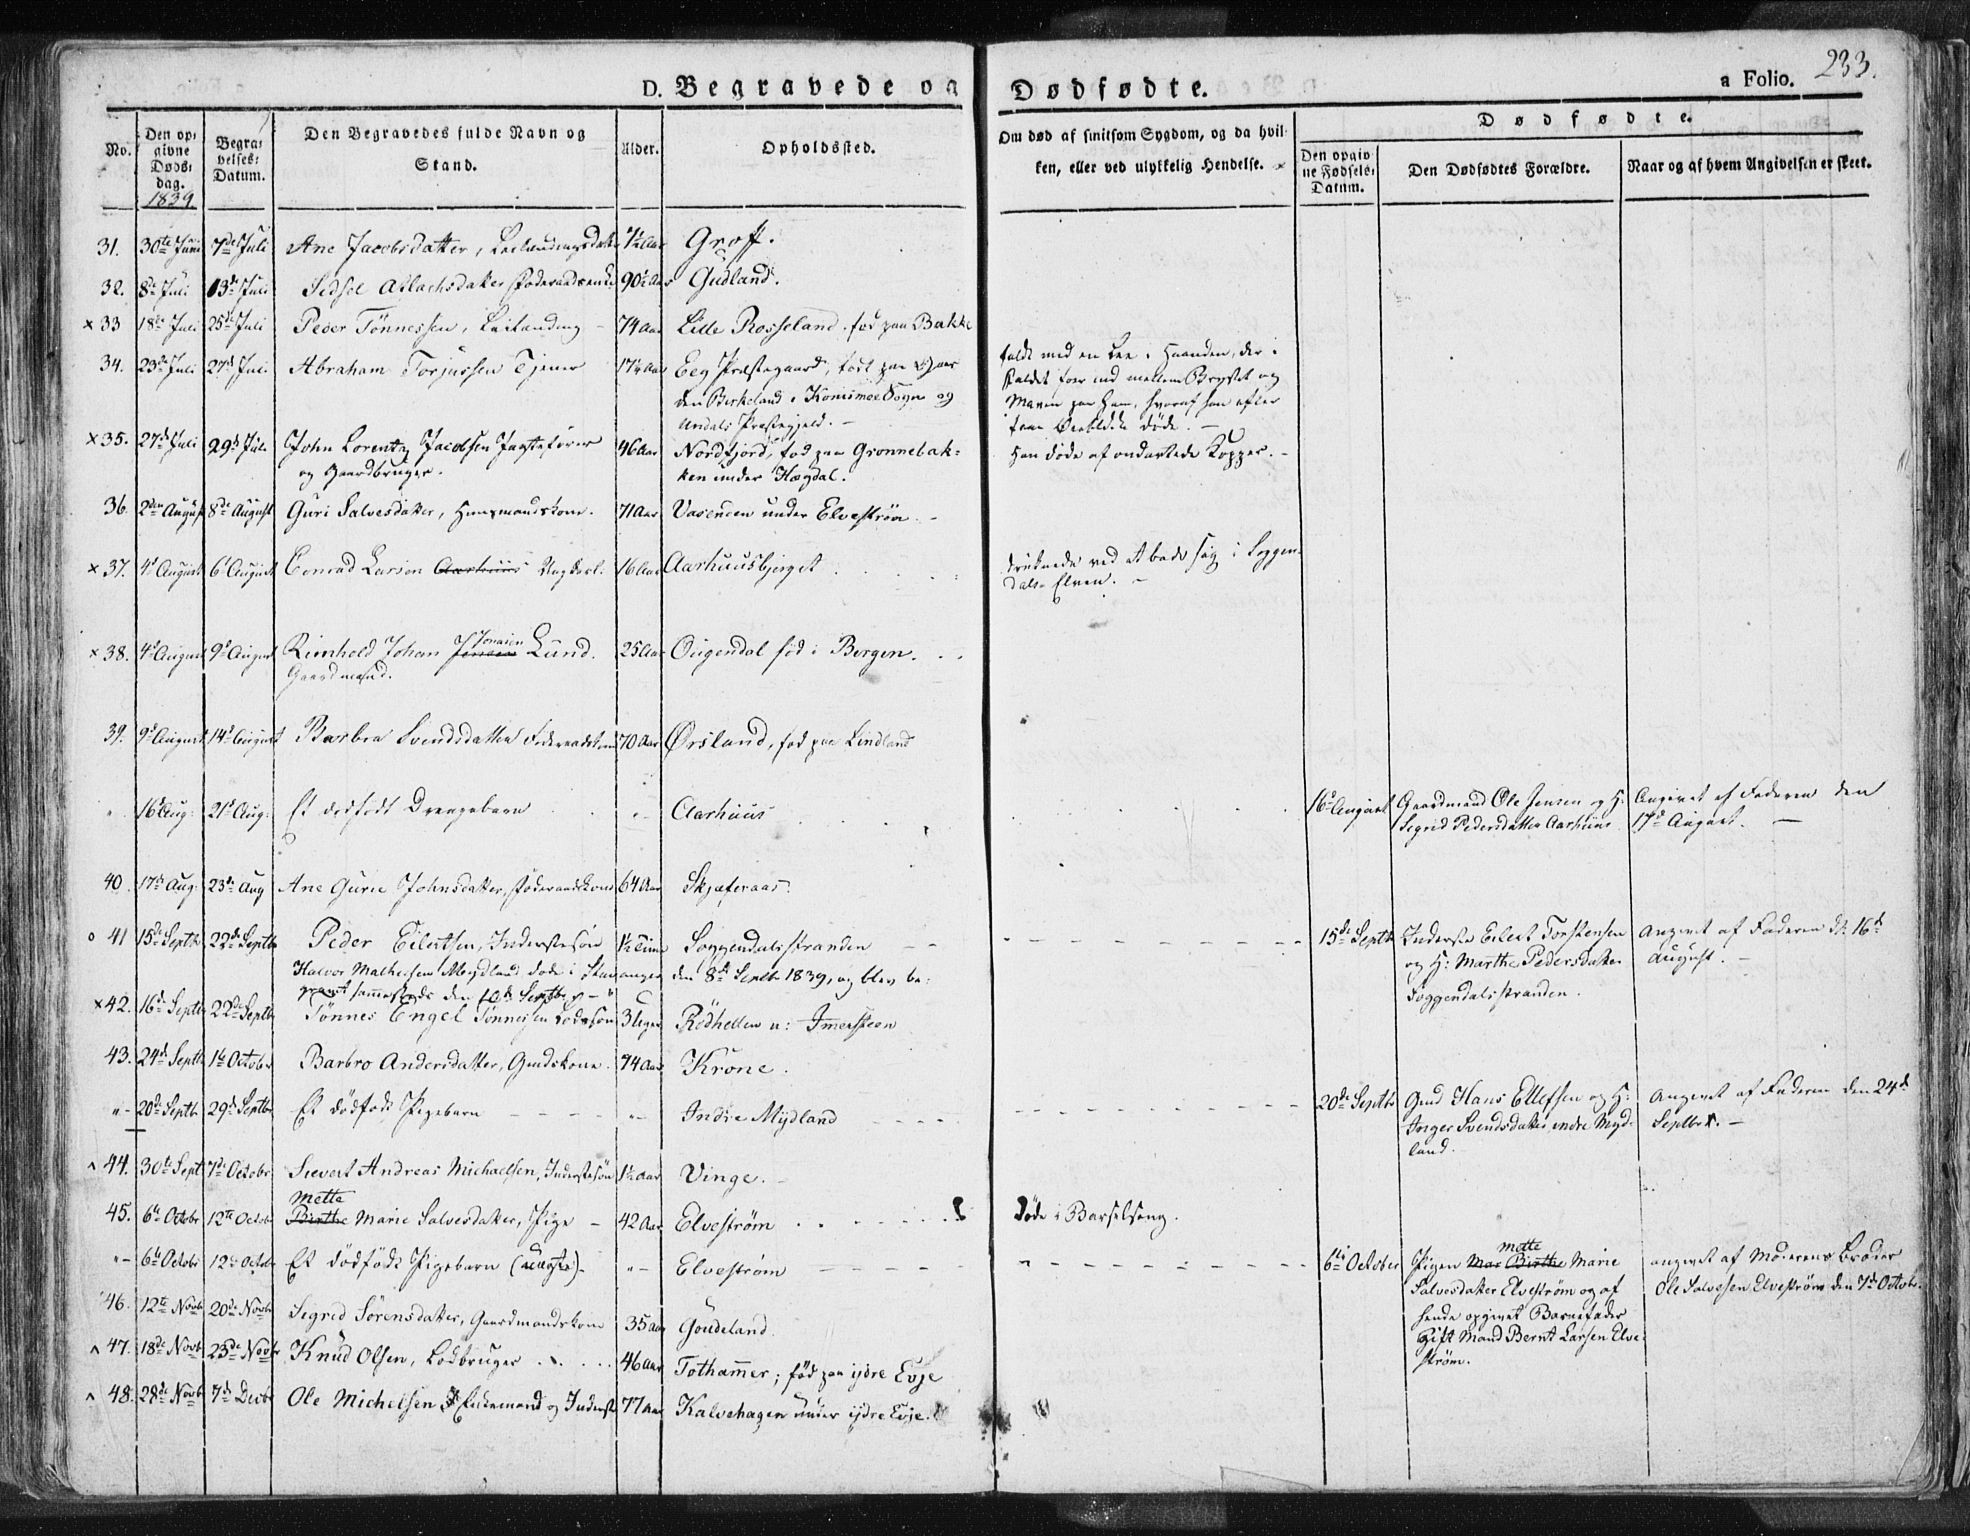 233.
D. Begravede og Dødfødte. a Folio.
No. Den opgivne Dødsdag. Begravelses-Datum. Den Begravedes fulde Navn og Stand. Alder. Opholdssted. Om død af smitsom Sygdom, og da hvilken, eller ved ulykkelig Hendelse. Dødfødte.
Den opgivne Fødsels-Datum. Den Dødfødtes Forældre. Naar og af hvem Angivelsen er skeet.
1839
31. 30te Juni 7de Juli Ane Jacobsdatter, Leilændings Datter Groff.
32. 8de Juli 13de Juli Sidsel Aslachsdatter Føderaadsenke 90½ Aar Gudland.
× 33 18de Juli 25de Juli Peder Tönnessen, Leilænding 74 Aar Lille Rosseland, fød paa Bakke
34. 23de Juli 27de Juli Abraham Torjussen Tjener 17½ Aar Eeg Præstegaard, født paa
den Birkeland i Konismoe Sogn og
Undals Præstegjeld. –
faldt med en Lee i Haanden, der i
Faldet foer ind mellem Brystet og
Maven paa Ham, hvoraf han efter
døde. –
× 35. 27de Juli 29de Juli John Lorentz Jacobsen Jagtefører
og Gaardbruger. 46 Aar Nordfjord, fød paa Grønnebak-
ken under Hægdal. Han døde af ondartede Kopper. –
36. 2den August 8de August Guri Salvesdatter, Huusmandskone. 71 Aar Vasenden under Elvestrøm. –
× 37. 4de August 6te August Conrad Larsen Aarhuus Ungkarl. 16 Aar Aarhuusbjerget druknede ved at bade sig i Soggen-
dals-Elven. –
× 38. 4de August 9de August Reinhold Johan Jonasen Lund.
Gaardmand. 25 Aar Ougendal fød i Bergen.
39. 9de August 14de August Barbra Svendsdatter Føderaadskone 70 Aar Ørsland, fød paa Lindland
" 16de Aug: 21de Aug: Et dødfødt Drengebarn "– Aarhuus 16de August Gaardmand Ole Jensen og H:
Sigrid Pedersdatter Aarhuus Angivet af Faderen den
17de August. –
40. 17de Aug: 23de Aug Ane Gurie Johnsdatter, Føderaadskone 64 Aar Skjæferaas.
o 41 15de Septbr 22de Septbr Peder Eilertsen, Inderstesøn 1½ Time Soggendalsstranden 15de Septbr Inderste Eilert Torstensen
og H: Marthe Pedersdatter
Soggendalsstranden. Angivet af Faderen d: 16de
August. –
Halvor Matheisen Mydland døde i Stavanger den 8de Septbr 1839, og blev be-
gravet sammesteds den 10de Septbr
× 42. 16de Septbr 22de Septbr Tönnes Engel Tönnesen Lodssøn 3 Uger Rödhellen u: Imersteen
43. 24de Septbr 1te Octobr Barbro Andersdatter, Gmdskone. 74 Aar Krone.
"– 20de Septbr 29de Septbr Et dødfødt Pigebarn "– Indre Mydland 20de Septbr Gmd Hans Ellefsen og H:
Inger Svendsdatter indre Myd-
land. Angivet af Faderen den 24de
Septbr. –
44. 30te Sept 7de Octobr Sievert Andreas Michaelsen, Inderstesøn 1½ Aar Vinge. –
45. 6te Octobr 12te Octobr Mette
Birthe Marie Salvesdatter, Pige – 42 Aar Elvestrøm døde i Barselseng.
"– 6te Octobr 12te Octobr Et dødfødt Pigebarn (uægte). "– Elvestrøm 6te October Pigen Mar Birthe Mette Marie
Salvesdatter Elvestrøm og af
hende opgivet Barnefader
Gift Mand Bernt Larsen Elve-
strøm. angivet af Moderens Broder
Ole Salvesen Elvestrøm den 7de Octobr.
46. 12te Novbr 20de Novbr Segrid Sörensdatter, Gaardmandskone 35 Aar Goudeland.
47. 18de Novb 23de Novbr Knud Olsen, Lodbruger 46 Aar Tothammer; fød paa ydre Evje
48. 28de Novbr 7de Decbr Ole Michelsen Enkemand og Inderst 77 Aar Kalvehagen under ydre Evje.